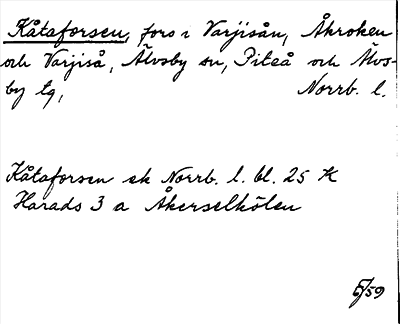 Kåtaforsen, fors i Varjisån, Åkroken
och Varjiså, Älvsby sn, Piteå och Älvs-
by tg, Norrb. l.
Kåtaforsen ek Norrb. l. bl. 25 K
Harads 3 a Åkerselkölen
6/59